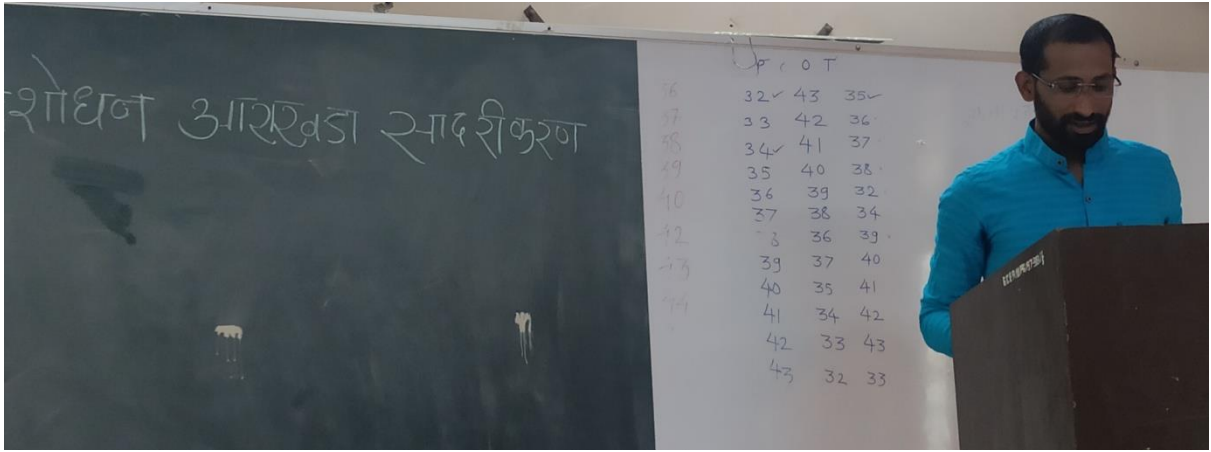 शोधन आराखडा सादरीकरण
P O T
32✓ 43 35✓
33 42 36
34✓ 41 37
35 40 38
36 39 32
37 38 34
8 36 39
39 37 40
40 35 41
41 34 42
42 33 43
43 32 33
36
37
38
39
40
42
43
44